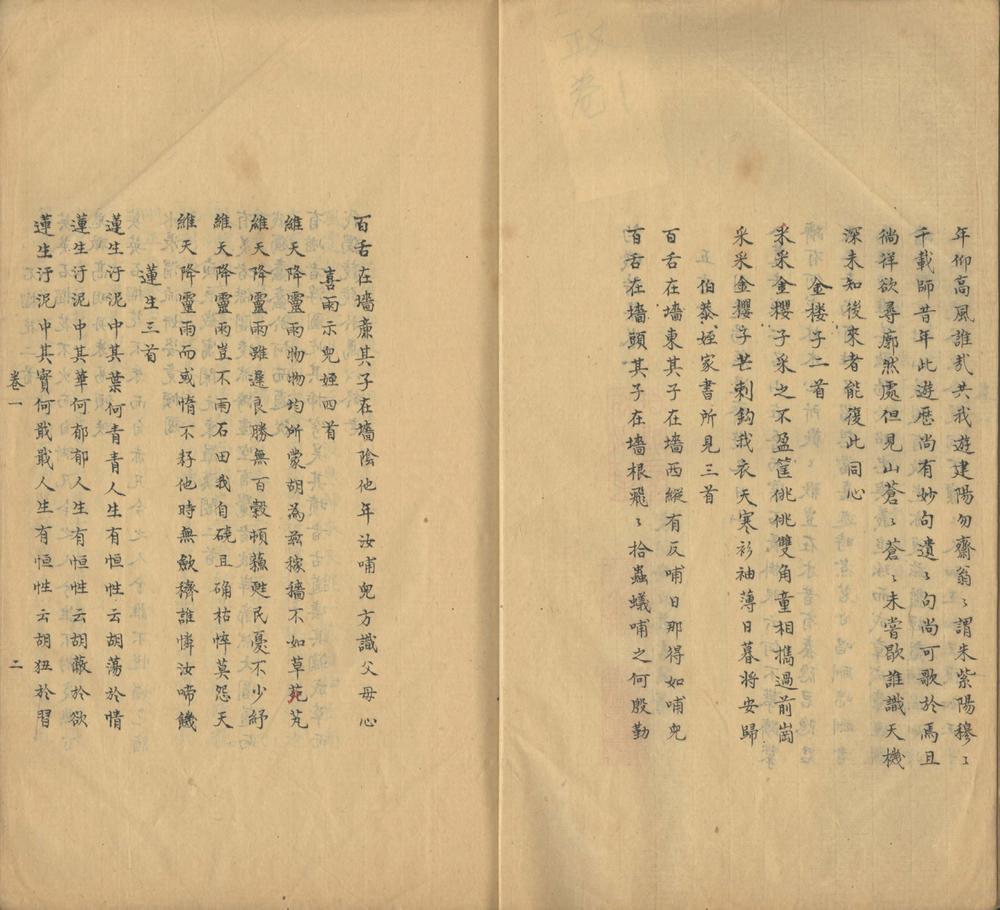 年仰高風誰哉共我遊建陽勿齋翁〻謂朱紫陽穆〻
千載師昔年此遊歷尚有妙句遺〻句尚可歌於焉且
徜徉欲尋廓然處但見山蒼〻蒼〻未嘗歇誰識天機
深未知後來者能復此同心
金櫻子二首
采采金櫻子采之不盈筐佻佻雙角童相擕過前崗
采采金櫻子芒刺鈎我衣天寒衫袖薄日暮将安歸
伯恭姪家書所見三首
百舌在墻東其子在墻西縱有反哺日那得如哺兒
百舌在墻頭其子在墻根飛〻拾蟲蟻哺之何殷勤
百舌在墻廡其子在墻陰他年汝哺兒方識父母心
喜雨示兒姪四首
維天降靈雨物物均所蒙胡為蓺稼穡不如草苑芃
維天降靈雨雖遲良勝無百穀頓蘓甦民憂不少紓
維天降靈雨豈不雨石田我自磽且确枯悴莫怨天
維天降靈雨而或惰不耔他時無歛穧誰憐汝啼饑
蓮生三首
蓮生汙泥中其葉何青青人生有恒性云胡蕩於情
蓮生汙泥中其華何郁郁人生有恒性云胡蔽於欲
蓮生汙泥中其實何戢戢人生有恒性云胡狃於習
卷一
二